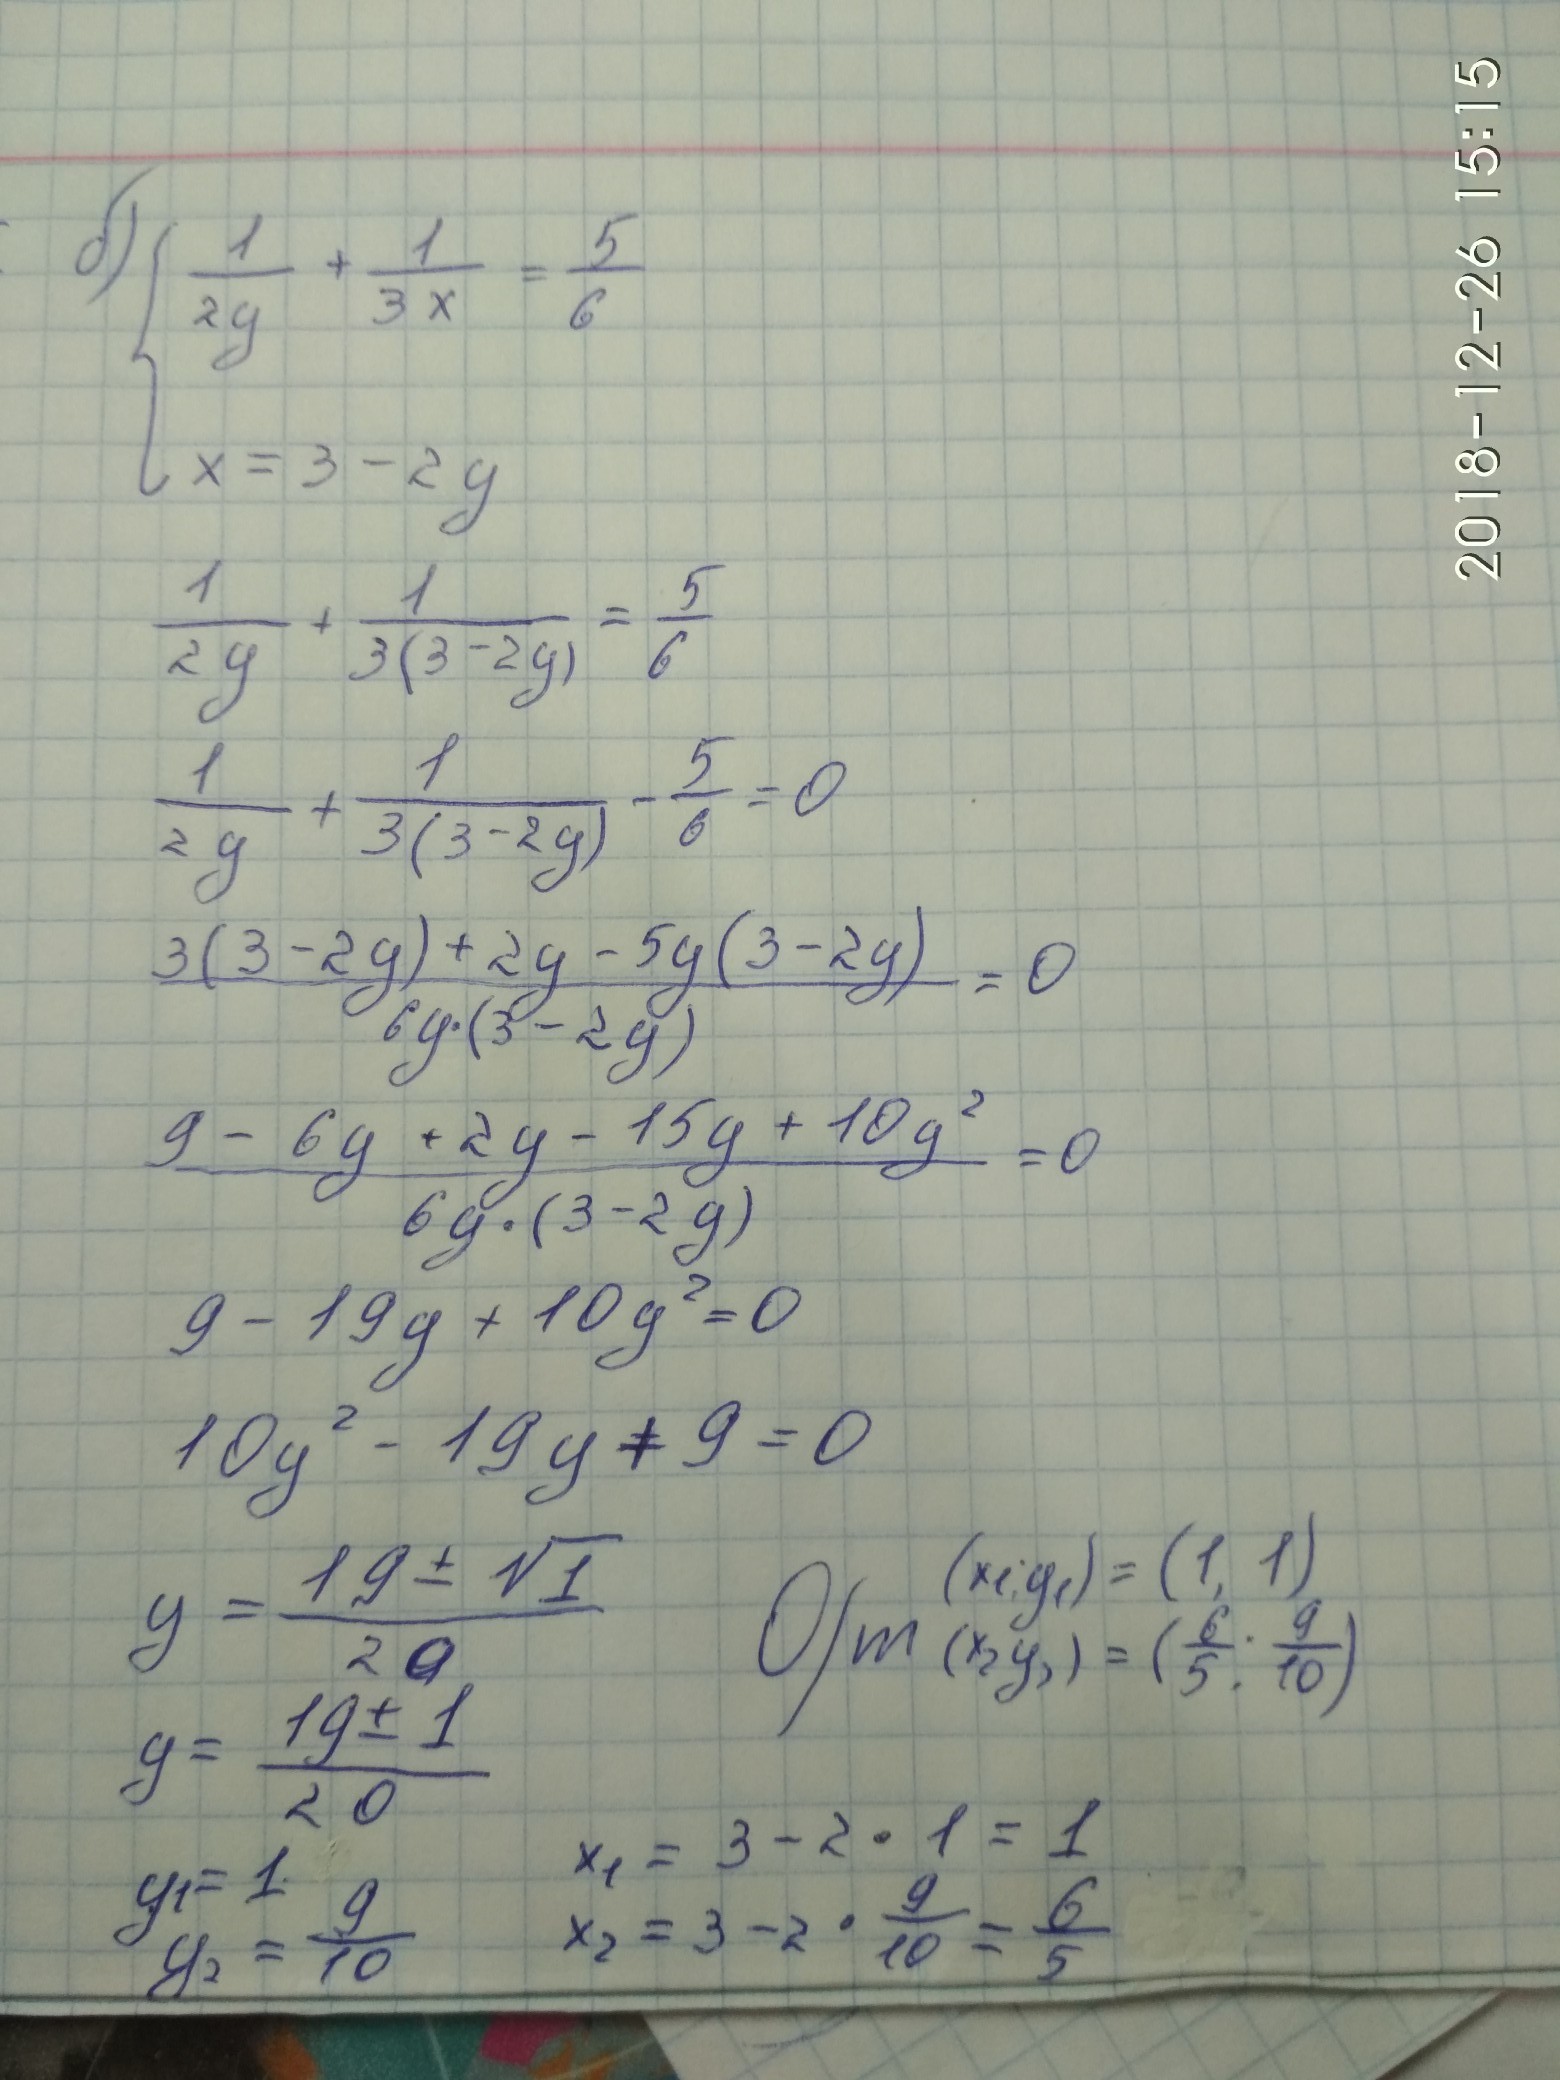 б) { 1/2y + 1/3x = 5/6
x = 3 - 2y
1/2y + 1/3(3-2y) = 5/6
1/2y + 1/3(3-2y) - 5/6 = 0
3(3-2y)+2y-5y(3-2y) / 6y·(3-2y) = 0
9 - 6y + 2y - 15y + 10y² / 6y·(3-2y) = 0
9 - 19y + 10y² = 0
10y² - 19y + 9 = 0
y = 19 ± √1 / 20
y = 19 ± 1 / 20
y₁ = 1
y₂ = 9/10
x₁ = 3 - 2 · 1 = 1
x₂ = 3 - 2 · 9/10 = 6/5
О/т (x₁;y₁) = (1, 1)
(x₂y₂) = (6/5; 9/10)
2018-12-26 15:15